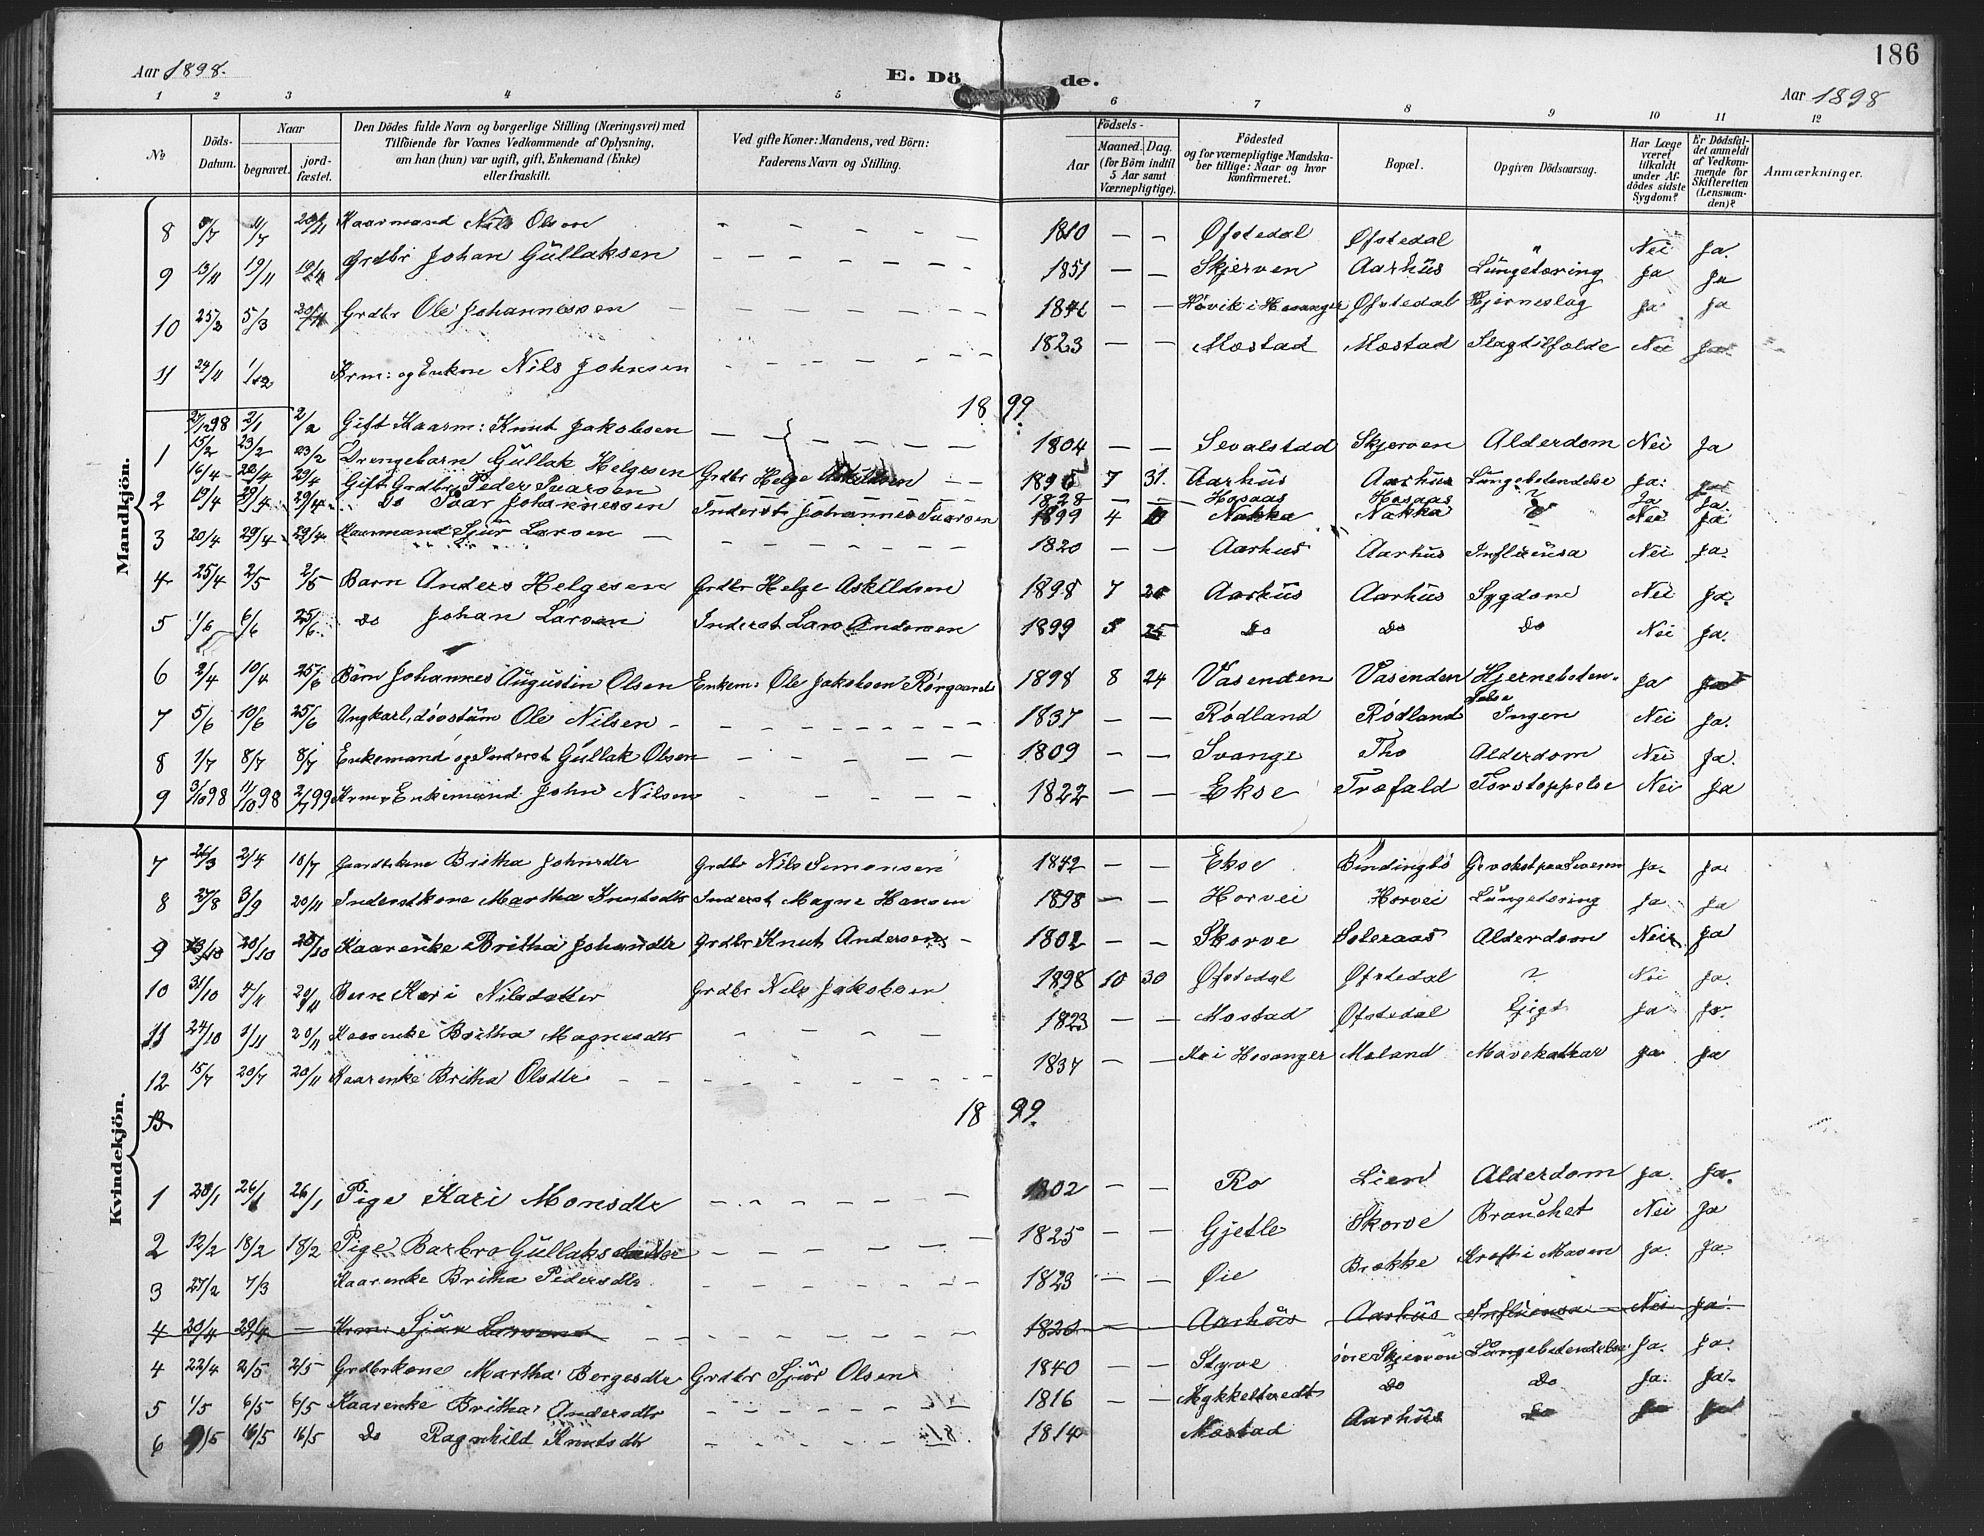 186
Aar 1898.
E. Dö de.
Aar 1898
1 2 3 4 5 6 7 8 9 10 11 12
№
Döds-Datum.
Naar
begravet.
jord-fæstet.
Den Dödes fulde Navn og borgerlige Stilling (Næringsvei) med
Tilföiende for Voxnes Vedkommende af Oplysning,
om han (hun) var ugift, gift, Enkemand (Enke)
eller fraskilt.
Ved gifte Koner: Mandens, ved Börn:
Faderens Navn og Stilling.
Födsels-
Aar
Maaned. Dag.
(for Börn indtil
5 Aar samt
Værnepligtige).
Födested
og for værnepligtige Mandska-
ber tillige: Naar og hvor
konfirmeret.
Bopæl.
Opgiven Dödsaarsag.
Har Læge
været
tilkaldt
under Af-
dödes sidste
Sygdom?
Er Dödsfal-
det anmeldt
af Vedkom-
mende for
Skifteretten
(Lensman-
den)?
Anmærkninger.
Mandkjön.
8 9/7 11/7 20/11 Kaarmand Nils Olsen 1810 — — Øfstedal Øfstedal " Nei Ja.
9 13/11 19/11 19/11 Grdbr Johan Gullaksen 1851 — — Skjerven Aarhus Lungetæring Ja Ja
10 25/2 5/3 Grdbr Ole Johannessen — — Høvik i Hosanger Øfstedal Hjerneslag Ja Ja
11 24/11 1/12 Krm: og Enkm Nils Johnsen 1823 — — Mostad Mostad Slagtilfælde Nei Ja.
1899.
1 27/12 98 2/1 2/2 Gift Kaarm: Knut Jakobsen 1804 — — Sevalstad Skjerven Alderdom Nei Ja
15/2 23/2 23/2 Drengebarn Gullak Helgesen Grdbr Helge Askildsen 7 31. Aarhus Aarhus Lungebetendelse Ja.
16/4 29/4 Gift Grdbr Peder Ivarsen 1828 — — Hosaas Hosaas ? Ja Ja.
2 19/4 29/4 29/4 Do Ivar Johannessen Inderst Johannes Ivarsen 1899 4 Nakka Nakka Nei Ja
3 20/4 29/4 29/4 Kaarmand Sjur Larsen — 1820 — — Aarhus Aarhus Influensa Nei Ja.
4 25/4 2/5 2/5 Barn Anders Helgesen Grdbr Helge Askildsen 1898 7 20 Aarhus Aarhus Sygdom Nei Ja.
5 1/6 6/6 25/6 Do Johan Larsen Inderst Lars Andersen 1899 5 25 Do Do Do Nei Ja.
6 2/4 10/4 25/6 Barn Johannes Augustin Olsen Enkem: Ole Jakobsen Rørgaard 1898 8 24 Vasenden Vasenden Hjernebeten-
delse Ja
7 5/6 10/6 25/6 Ungkarl, døvstum Ole Nilsen 1837 — — Rødland Rødland Ingen Nei Ja.
8 1/7 8/7 8/7 Enkemand og Inderst Gullak Olsen 1809 — — Svange Tho Alderdom Nei Ja.
9 3/10 98 11/10 98 2/7 99 Krm, Enkemand John Nilsen 1822 — — Ekse Træfald Forstoppelse Nei Ja
Kvindekjön.
7 2/4 10/7 Gaardbrkone Britha Johnsdtr Grdbr Nils Simonsen 1842 — — Ekse Ja. Ja.
8 27/8 3/9 20/11 Inderstkone Martha Knutsdtr Inderst Magne Hansen 1898 — — Horvei Horvei Lungetæring Ja Ja
9 20/10 20/10 Kaarenke Britha Johansdtr Grdbr Knut Andersen 1802 — — Skorve Soleraas Alderdom Nei Ja
10 31/10 4/11 20/11 Barn Kari Nilsdatter Grdbr Nils Jakobsen 1898 10 30 Øfstedal Øfstedal ? Nei Ja.
11 24/10 1/11 20/11 Kaarenke Britha Magnusdtr 1823 — — Mostad Øfstedal Gigt Ja Ja.
12 15/7 20/7 20/11 Kaarenke Britha Olsdtr 1837 — — Mo i Hosanger Moland Mavekatar Ja Ja
13
1899.
1 20/1 26/1 26/1 Pige Kari Monsdtr 1802 — — Ro Lien Alderdom Ja. Ja.
2 12/2 18/2 18/2 Pige Barbro Gullaksdatter 1825 — — Gjetle Skorve Branchet Nei Ja
3 27/2 7/3 Kaarenke Britha Pedersdtr 1823 — — Øie Brække Kræft i Maven Ja. Ja.
4 20/4 29/4 — Krm: Sjur Larsen 1820 Aarhus Aarhus Influensa Nei Ja.
4 22/4 2/5 2/5 Grdbrkone Martha Børgesdtr Grdbr Sjur Olsen 1840 — — Styve øvre Skjerven Lungebetendelse Ja. Ja.
5 1/5 6/5 6/5 Kaarenke Britha Andersdtr 1816 — — Mykkeltvedt Do Do Ja. Ja.
6 9/5 16/5 16/5 Do Ragnhild Knutsdtr 1814 Mostad Aarhus Do